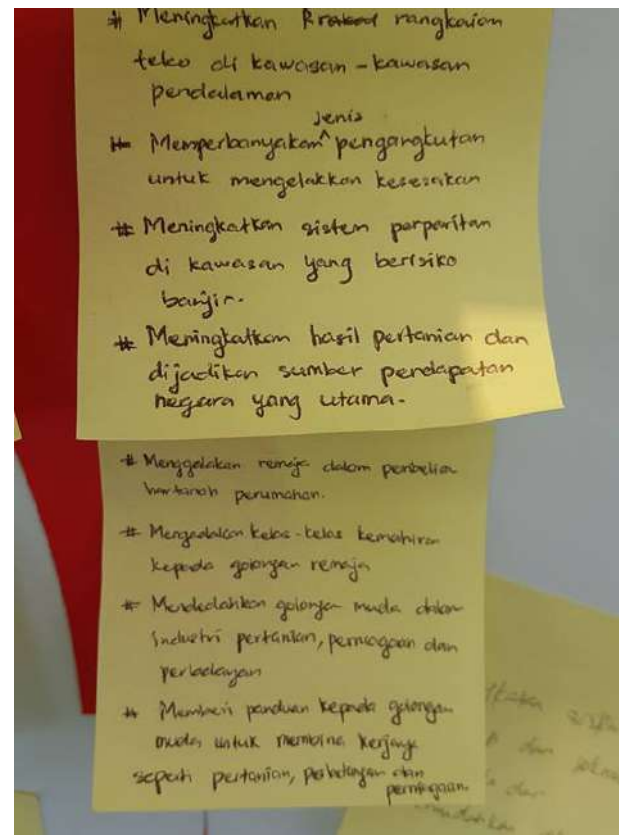 # Meningkatkan rangkaian
teko di kawasan - kawasan
pendalaman
jenis
# Memperbanyakan ^ pengangkutan
untuk mengelakkan kesesakan
# Meningkatkan sistem perparitan
di kawasan yang berisiko
banjir.
# Meningkatkan hasil pertanian dan
dijadikan sumber pendapatan
negara yang utama.
# Menggalakan remaja dalam pembelian
hartanah perumahan.
# Mengadakan kelas-kelas kemahiran
kepada golongan remaja
# Mendedahkan golongan muda dalam
industri pertanian, perniagaan dan
perladangan
# Memberi panduan kepada golongan
muda untuk membina kerjaya
seperti pertanian, perladangan dan
perniagaan.
dan